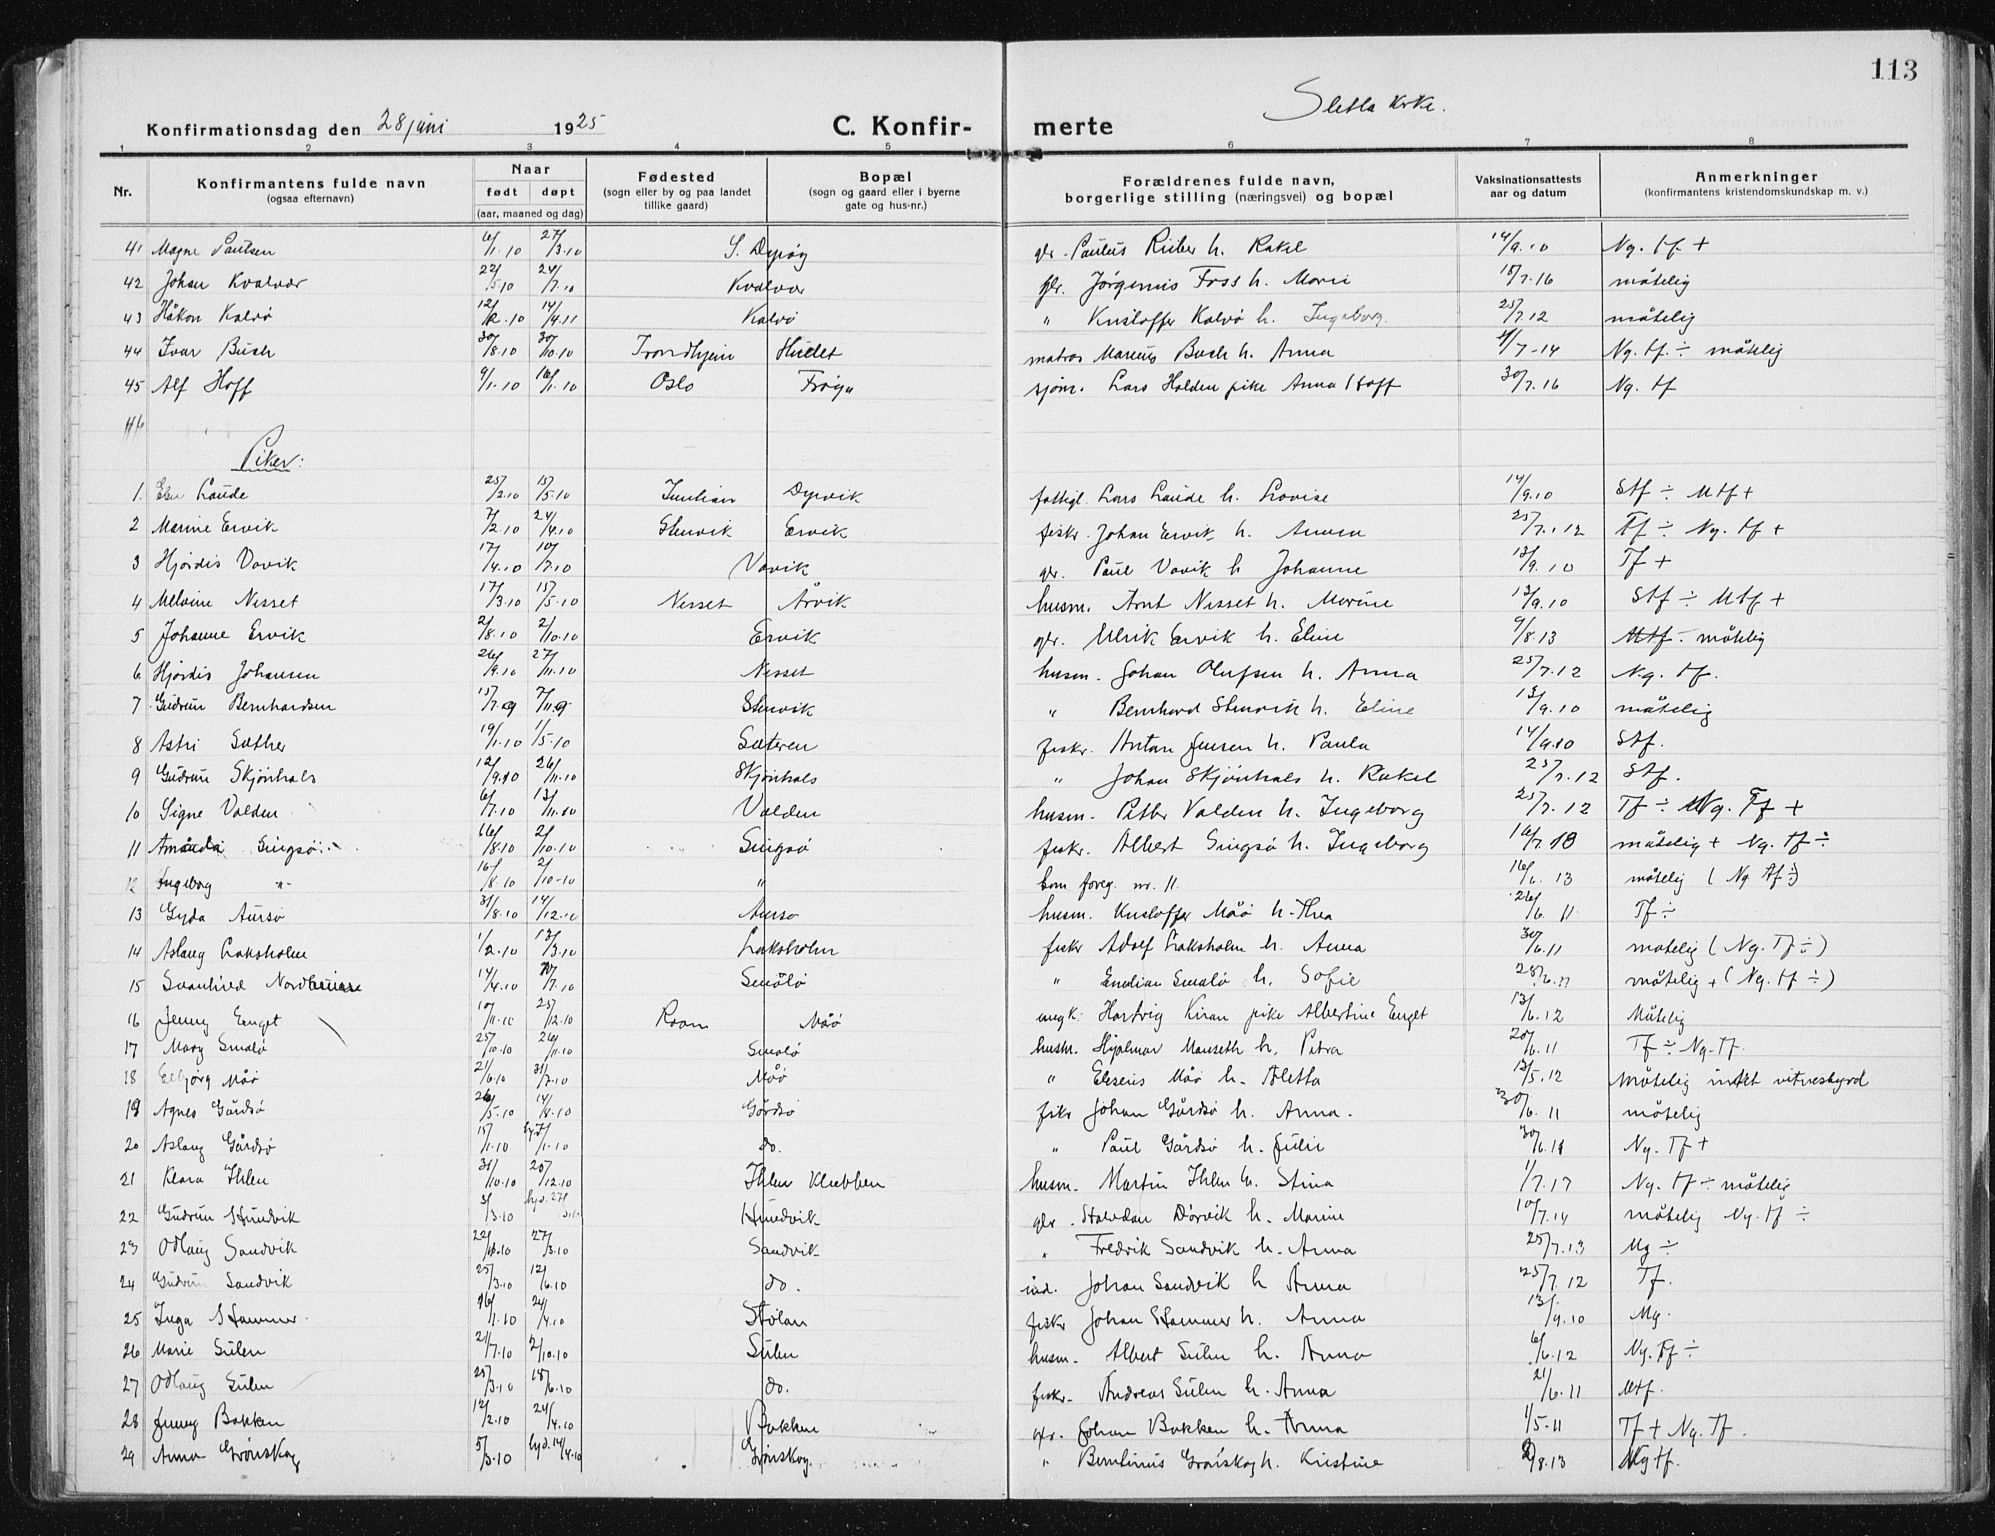 113
Sletta kirke.
Konfirmationsdag den 28 juni 1925 C. Konfir- merte
1 2 3 4 5 6 7 8
Nr. Konfirmantens fulde navn (ogsaa efternavn) Naar født døpt (aar, maaned og dag) Fødested (sogn eller by og paa landet tillike gaard) Bopæl (sogn og gaard eller i byerne gate og hus-nr.) Forældrenes fulde navn, borgerlige stilling (næringsvei) og bopæl Vaksinationsattests aar og datum Anmerkninger (konfirmantens kristendomskundskap m. v.)
41 Magne Paulsen 6/1.10 27/3.10 S. Dyrøy gbr. Paulus Riiber h. Rakel 14/9.10 Ng. tf +
42 Johan Kvalvær 22/5.10 24/7.10 Kvalvær gbr. Jørginus Foss h. Marie 18/7.16 måtelig
43 Håkon Kalvø 12/2.10 14/4.11 Kalvø " Kristoffer Kalvø h. Ingeborg. 25/7.12 måtelig
44 Ivar Buch 30/8.10 30/10.10 Trondhjem Hullet matros Marius Buch h. Anna 4/7-14 Ng. tf. ÷ måtelig
45 Alf Hoff 9/1.10 16/1.10 Oslo Frøya sjøm. Lars Holden pike Anna Hoff 30/7.16 Ng. tf
46
Piker:
1. Laude 25/2.10 15/5.10 Dyrvik fattigl. Lars Laude h. Lovise 14/9.10 Stf ÷ Mtf +
2 Marine Ervik 7/2.10 24/4.10 Stenvik Ervik fiskr. Johan Ervik h. Anna 25/7.12 Tf ÷ Ng. tf +
3 Hjørdis Vavik 17/4.10 10/7.10 Vavik gbr. Paul Vavik h Johanne 13/9.10 Tf +
4 Melvine Nesset 17/3.10 15/5.10 Nesset Årvik husm. Arnt Nesset h. Marine 13/9.10 Stf ÷ Mtf +
5 Johanne Ervik 2/8.10 2/10.10 Ervik gbr. Ulrik Ervik h. Eline 9/8.13 Mtf ÷ måtelig
6 Hjørdis Johansen 26/9.10 27/11.10 Nesset husm. Johan Olufsen h. Anna 25/7.12 Ng. tf.
7 Gudrun Bernhardsen 15/7.9 7/11.9 Stenvik " Bernhard Stenvik h. Eline 13/9.10 måtelig
8 Astri Sæther 19/1.10 1/5.10 Sæteren fiskr. Anton Jensen h. Paula 14/9.10 Stf.
9 Gudrun Skjønhals 12/9.10 26/11.10 Skjønhals " Johan Skjønhals h. Rakel 25/7.12 Stf.
10 Signe Valden 6/7.10 13/11.10 Valden husm. Petter Valden h. Ingeborg 25/7.12 Tf ÷ Ng. Tf +
11 Amanda Singsø 16/8.10 2/10.10 Singsø fiskr. Albert Singsø h. Ingeborg 16/7.13 måtelig + Ng. tf ÷
12 Ingeborg -"- 16/8.10 2/10-10 " som foreg. nr. 11. 16/6.13 måtelig ( Ng tf ÷)
13 Gyda Aursø 31/8.10 14/12.10 Aursø husm. Kristoffer Måø h. Thea 26/6.11 Tf ÷
14 Aslaug Laksholm 1/2.10 13/3.10 Laksholm fiskr Adolf Laksholm h. Anna 30/6.11 måtelig ( Ng. Tf ÷)
15 Svanhild 14/4.10 10/7.10 Smålø " Emelian Smalø h. Sofie 28/6.11 måtelig + ( Ng. tf ÷)
16 Jenny Enget 10/11.10 25/12.10 Roan Måø ungk. Hartvig Kiran pike Albertine Enget 13/6.12 Måtelig
17 Mary Smalø 25/10.10 26/11.10 Smalø husm. Hjalmar Manseth h. Petra 20/6.11 Tf ÷ Ng. tf
18 Elbjørg Måø 21/6.10 31/7.10 Måø " Eliseus Måø h. Aletta 13/5.12 måtelig intet vitnesbyrd
19 Agnes Gårdsø 26/5.10 14/8.10 Gårdsø fiskr Johan Gårdsø h. Anna. 30/6.11 måtelig
20 Aslaug Gårdsø 15/1.10 /1.10 do. " Paul Gårdsø h. Julie 30/6.11 Ng. Tf +
21 Klara Ihlen 31/10.10 25/12.10 Ihlen Klubben husm. Martin Ihlen h. Stina 1/7.17 Ng. tf ÷ måtelig
22 Gudrun Hundvik 3/3.10 hjd. 27/ Hundvik gbr. Halvdan Dørvik h. Marine 10/7.14 måtelig Ng. tf ÷
23 Odlaug Sandvik 22/.10 27/3.10 Sandvik " Fredrik Sandvik h. Anna 25/7.13 Mg ÷
24 Gudrun Sandvik 25/3.10 12/6.10 do. ind. Johan Sandvik h Anna 25/7.12 Tf.
25 Inga Hammer 16/1.10 24/4.10 Stølan fiskr Johan Hammer h. Anna 13/9.10 Mg.
26 Marie Sulen 21/7.10 2/10.10 Sulen husm. Albert Sulen h. Anna 6/6.12 Ng. Tf ÷
27 Odlaug Sulen 25/3.10 18/6.10 do. fiskr. Andreas Sulen h. Anna 21/6.11 Mtf.
28 Jenny Bakken 12/2.10 24/4.10 Bakken gbr. Johan Bakken h. Anna 1/5.11 Tf + Ng. Tf.
29 Anna Grønskog 5/3.10 hjd. 14/4.10 Grønskog. " Grønskog h. Kristine 2/8.13 Ng tf.